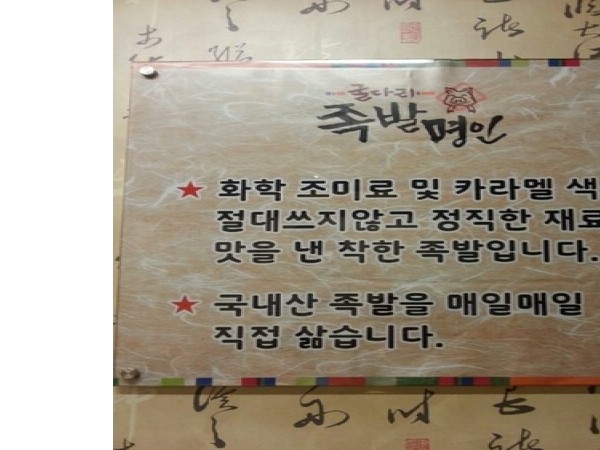 굴다리
족발명인
★ 화학 조미료 및 카라멜 색
절대쓰지않고 정직한 재료
맛을 낸 착한 족발입니다.
★ 국내산 족발을 매일매일
직접 삶습니다.